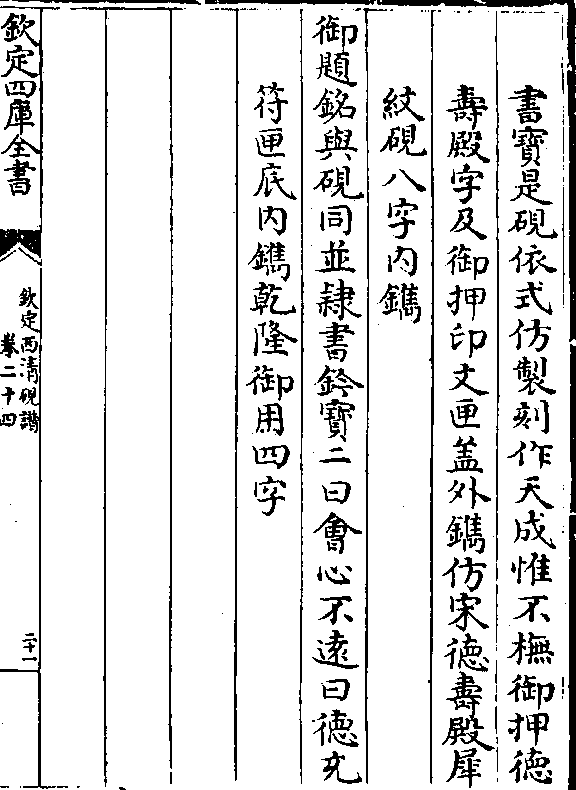 書寶是硯依式仿製刻作天成惟不橅御押德
壽殿字及御押印文匣盖外鐫仿宋德壽殿犀
紋硯八字内鐫
御題銘與硯同並隸書鈐寶二曰㑹心不逺曰德充
符匣底内鐫乾隆御用四字
欽定四庫全書
欽定西清硯譜
卷二十四
二十一